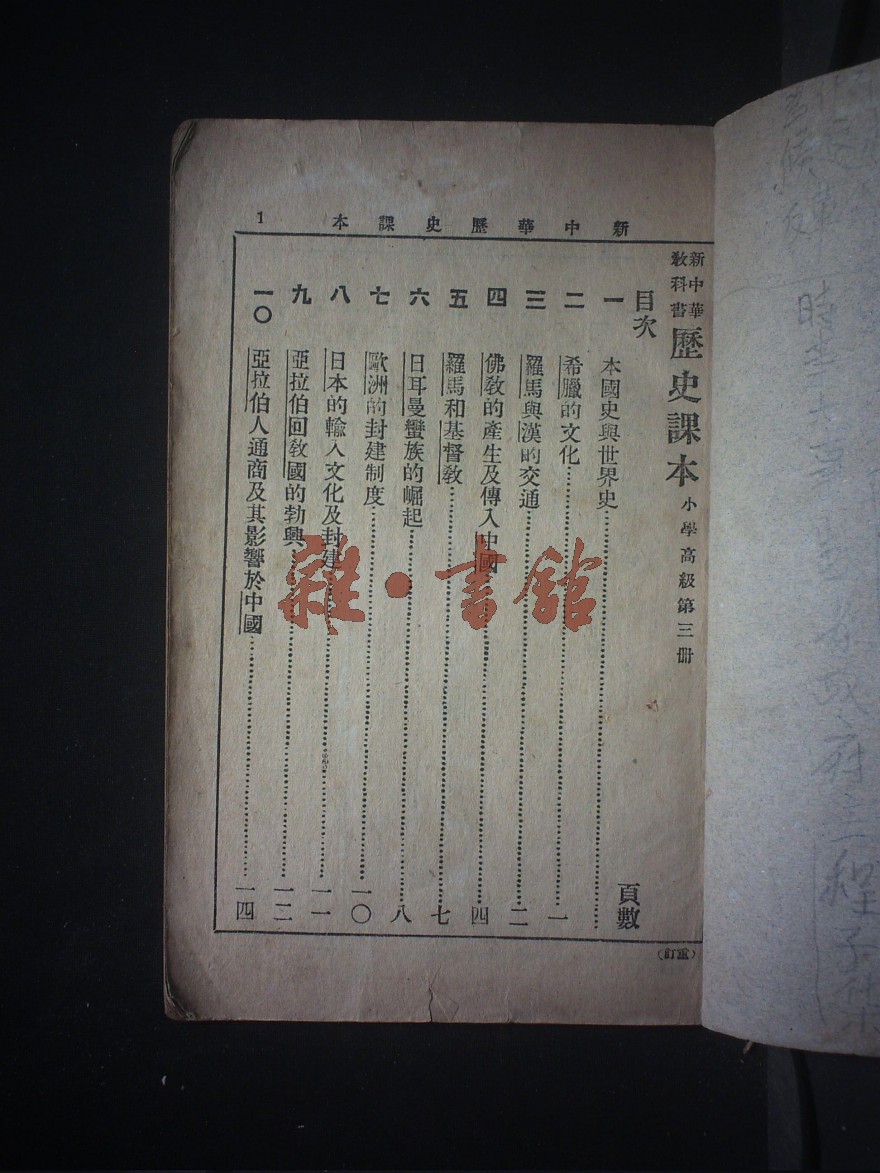 新中華歷史課本 1
新中華教科書 歷史課本 小學高級第三冊
目次 頁數
一 本國史與世界史……
二 希臘的文化……一
三 羅馬與漢的交通……二
四 佛教的產生及傳入中國……四
五 羅馬和基督教……七
六 日耳曼蠻族的崛起……八
七 歐洲的封建制度……一〇
八 日本的輸入文化及封建……一一
九 亞拉伯回教國的勃興……一二
一〇 亞拉伯人通商及其影響於中國……一四
(重訂)
雜·書館